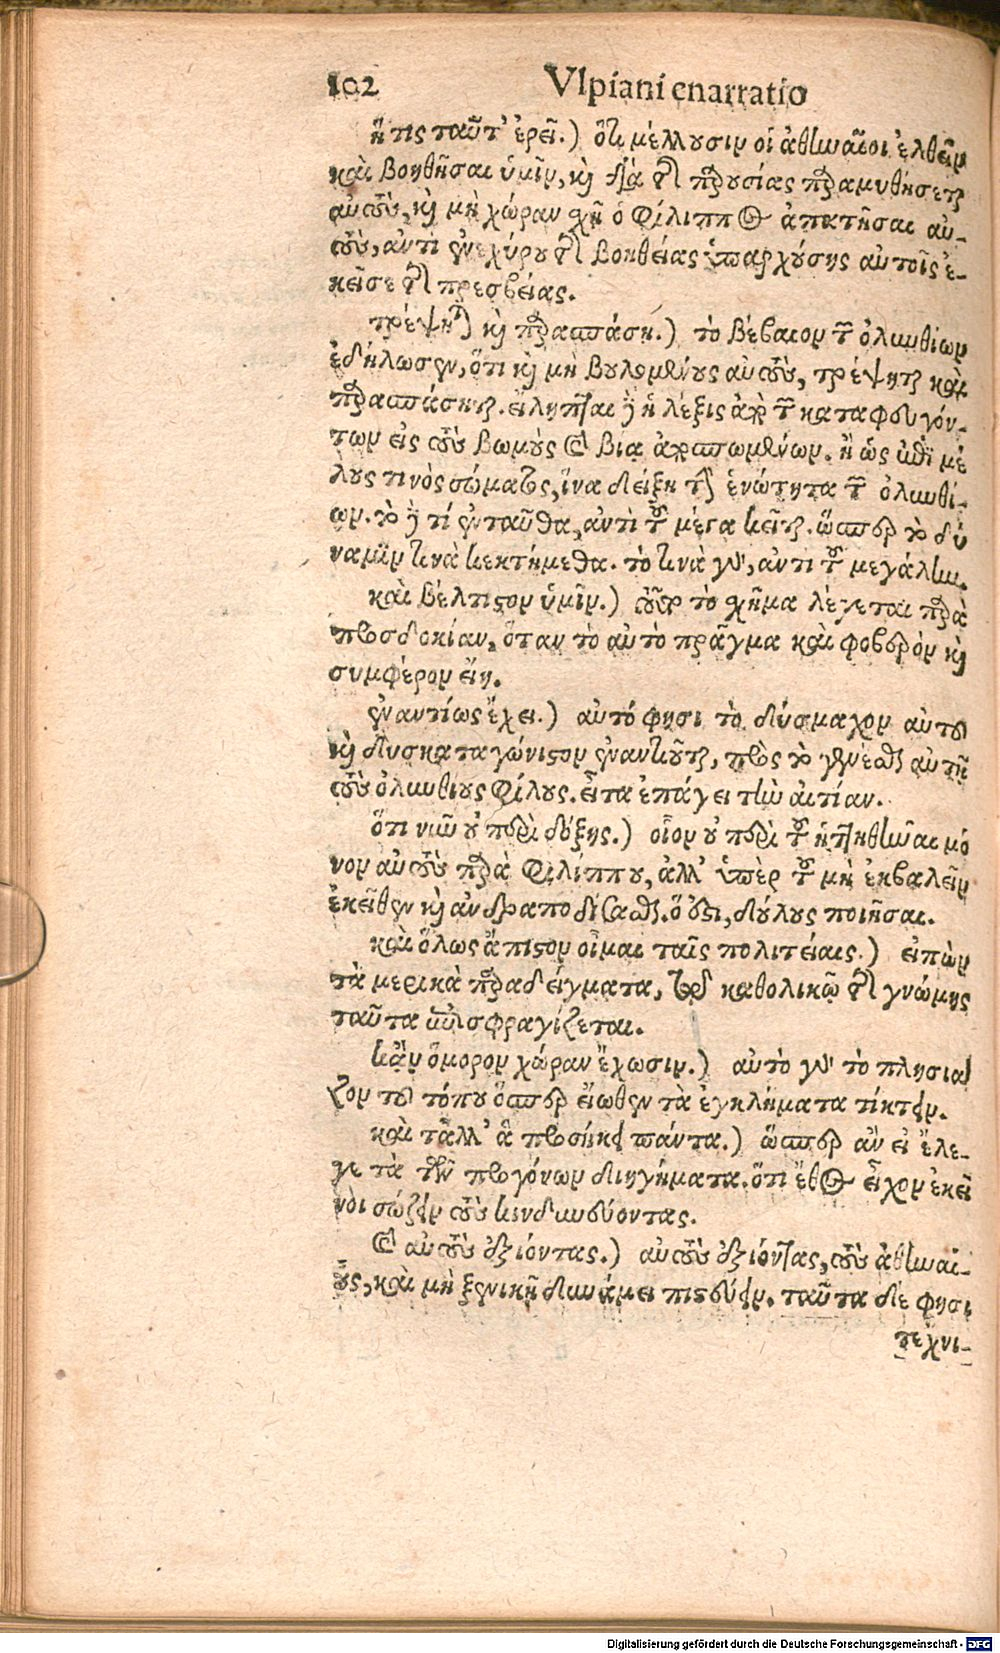 102 Vlpiani enarratio
ἥ τις ταῦτ' ἐρεῖ.) ὅτι μέλλουσιν οἱ ἀθηναῖοι ἐλθεῖν
καὶ βοηθῆσαι ὑμῖν, καὶ διὰ τῆς παρουσίας παραμυθήσεται
αὐτοὺς, καὶ μὴ χώραν σχῇ ὁ φίλιππος ἀπατῆσαι αὐ-
τοὺς, ἀντὶ ἐνεχύρου τῆς βοηθείας ὑπαρχούσης αὐτοῖς ἐ-
κεῖσε τῆς πρεσβείας.
τρέψηται καὶ παρασπάσῃ.) τὸ βέβαιον τῶν ὀλυνθίων
ἐδήλωσεν, ὅτι καὶ μὴ βουλομένους αὐτοὺς, τρέψηται καὶ
παρασπάσηται. εἴληπται δὲ ἡ λέξις ἀπὸ τῶν καταφυγόν-
των εἰς τοὺς βωμοὺς καὶ βίᾳ ἀποσπωμένων. ἢ ὡς ἐπὶ μέ
λους τινὸς σώματος, ἵνα δείξῃ τὴν ἑνότητα τῶν ὀλυνθί-
ων. τὸ δὲ τί ἐνταῦθα, ἀντὶ τοῦ μέγα κεῖται. ὥσπερ τὸ δύ
ναμίν τινα κεκτήμεθα. τὸ τινὰ γὰρ, ἀντὶ τοῦ μεγάλην.
καὶ βέλτιστον ὑμῖν.) τοῦτο τὸ σχῆμα λέγεται παρὰ
προσδοκίαν, ὅταν τὸ αὐτὸ πρᾶγμα καὶ φοβερὸν καὶ
συμφέρον εἴη.
ἐναντίως ἔχει.) αὐτό φησι τὸ δύσμαχον αὐτοῦ
καὶ δυσκαταγώνιστον ἐναντιοῦται, πρὸς τὸ γενέσθαι αὐτῷ
τοὺς ὀλυνθίους φίλους. εἶτα ἐπάγει τὴν αἰτίαν.
ὅτι νῦν οὐ περὶ δόξης.) οἷον οὐ περὶ τοῦ ἡττηθῆναι μό
νον αὐτοὺς παρὰ φιλίππου, ἀλλ' ὑπὲρ τοῦ μὴ ἐκβαλεῖν
ἐκεῖθεν καὶ ἀνδραποδίσασθαι. ὅ ἐστι, δούλους ποιῆσαι.
καὶ ὅλως ἄπιστον οἶμαι ταῖς πολιτείαις.) εἰπὼν
τὰ μερικὰ παραδείγματα, διὰ καθολικῆς τῆς γνώμης
ταῦτα ἐπισφραγίζεται.
κἂν ὅμορον χώραν ἔχωσιν.) αὐτὸ γὰρ τὸ πλησιά
ζον τοῦ τόπου ὥσπερ εἴωθεν τὰ ἐγκλήματα τίκτειν.
καὶ τἆλλ' ἃ προσήκει πάντα.) ὥσπερ ἂν εἰ ἔλε-
γε τὰ τῶν προγόνων διηγήματα. ὅτι ἔθος εἶχον ἐκεῖ
νοι σώζειν τοὺς κινδυνεύοντας.
καὶ αὐτοὺς ἐξιόντας.) αὐτοὺς ἐξιόντας, τοὺς ἀθηναί-
ους, καὶ μὴ ξενικῇ δυνάμει πιστεύειν. ταῦτα δέ φησι
τεχνι-
Digitalisierung gefördert durch die Deutsche Forschungsgemeinschaft - DFG